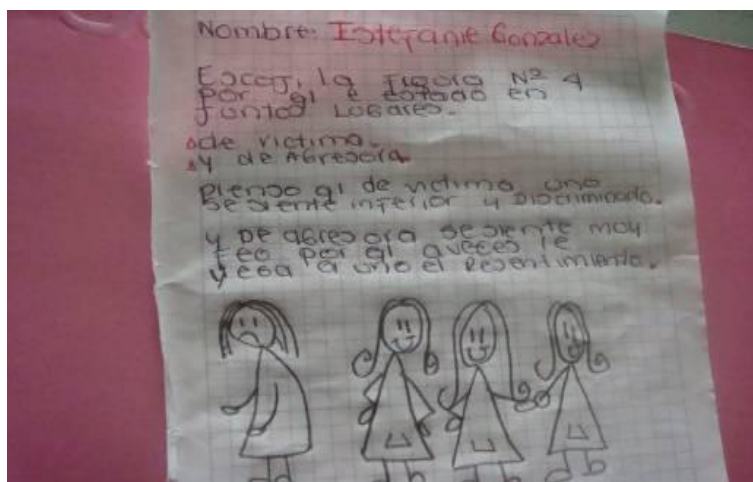 Nombre: Estefanie Gonzales
Escojí la figura Nº 4
por qi e estado en
juntos Lugares.
de victima.
y de Agresora.
Pienso qi de victima uno
se siente inferior y Discriminado.
y De agresora se siente muy
feo por qi aveces le
yega a uno el Resentimiento.